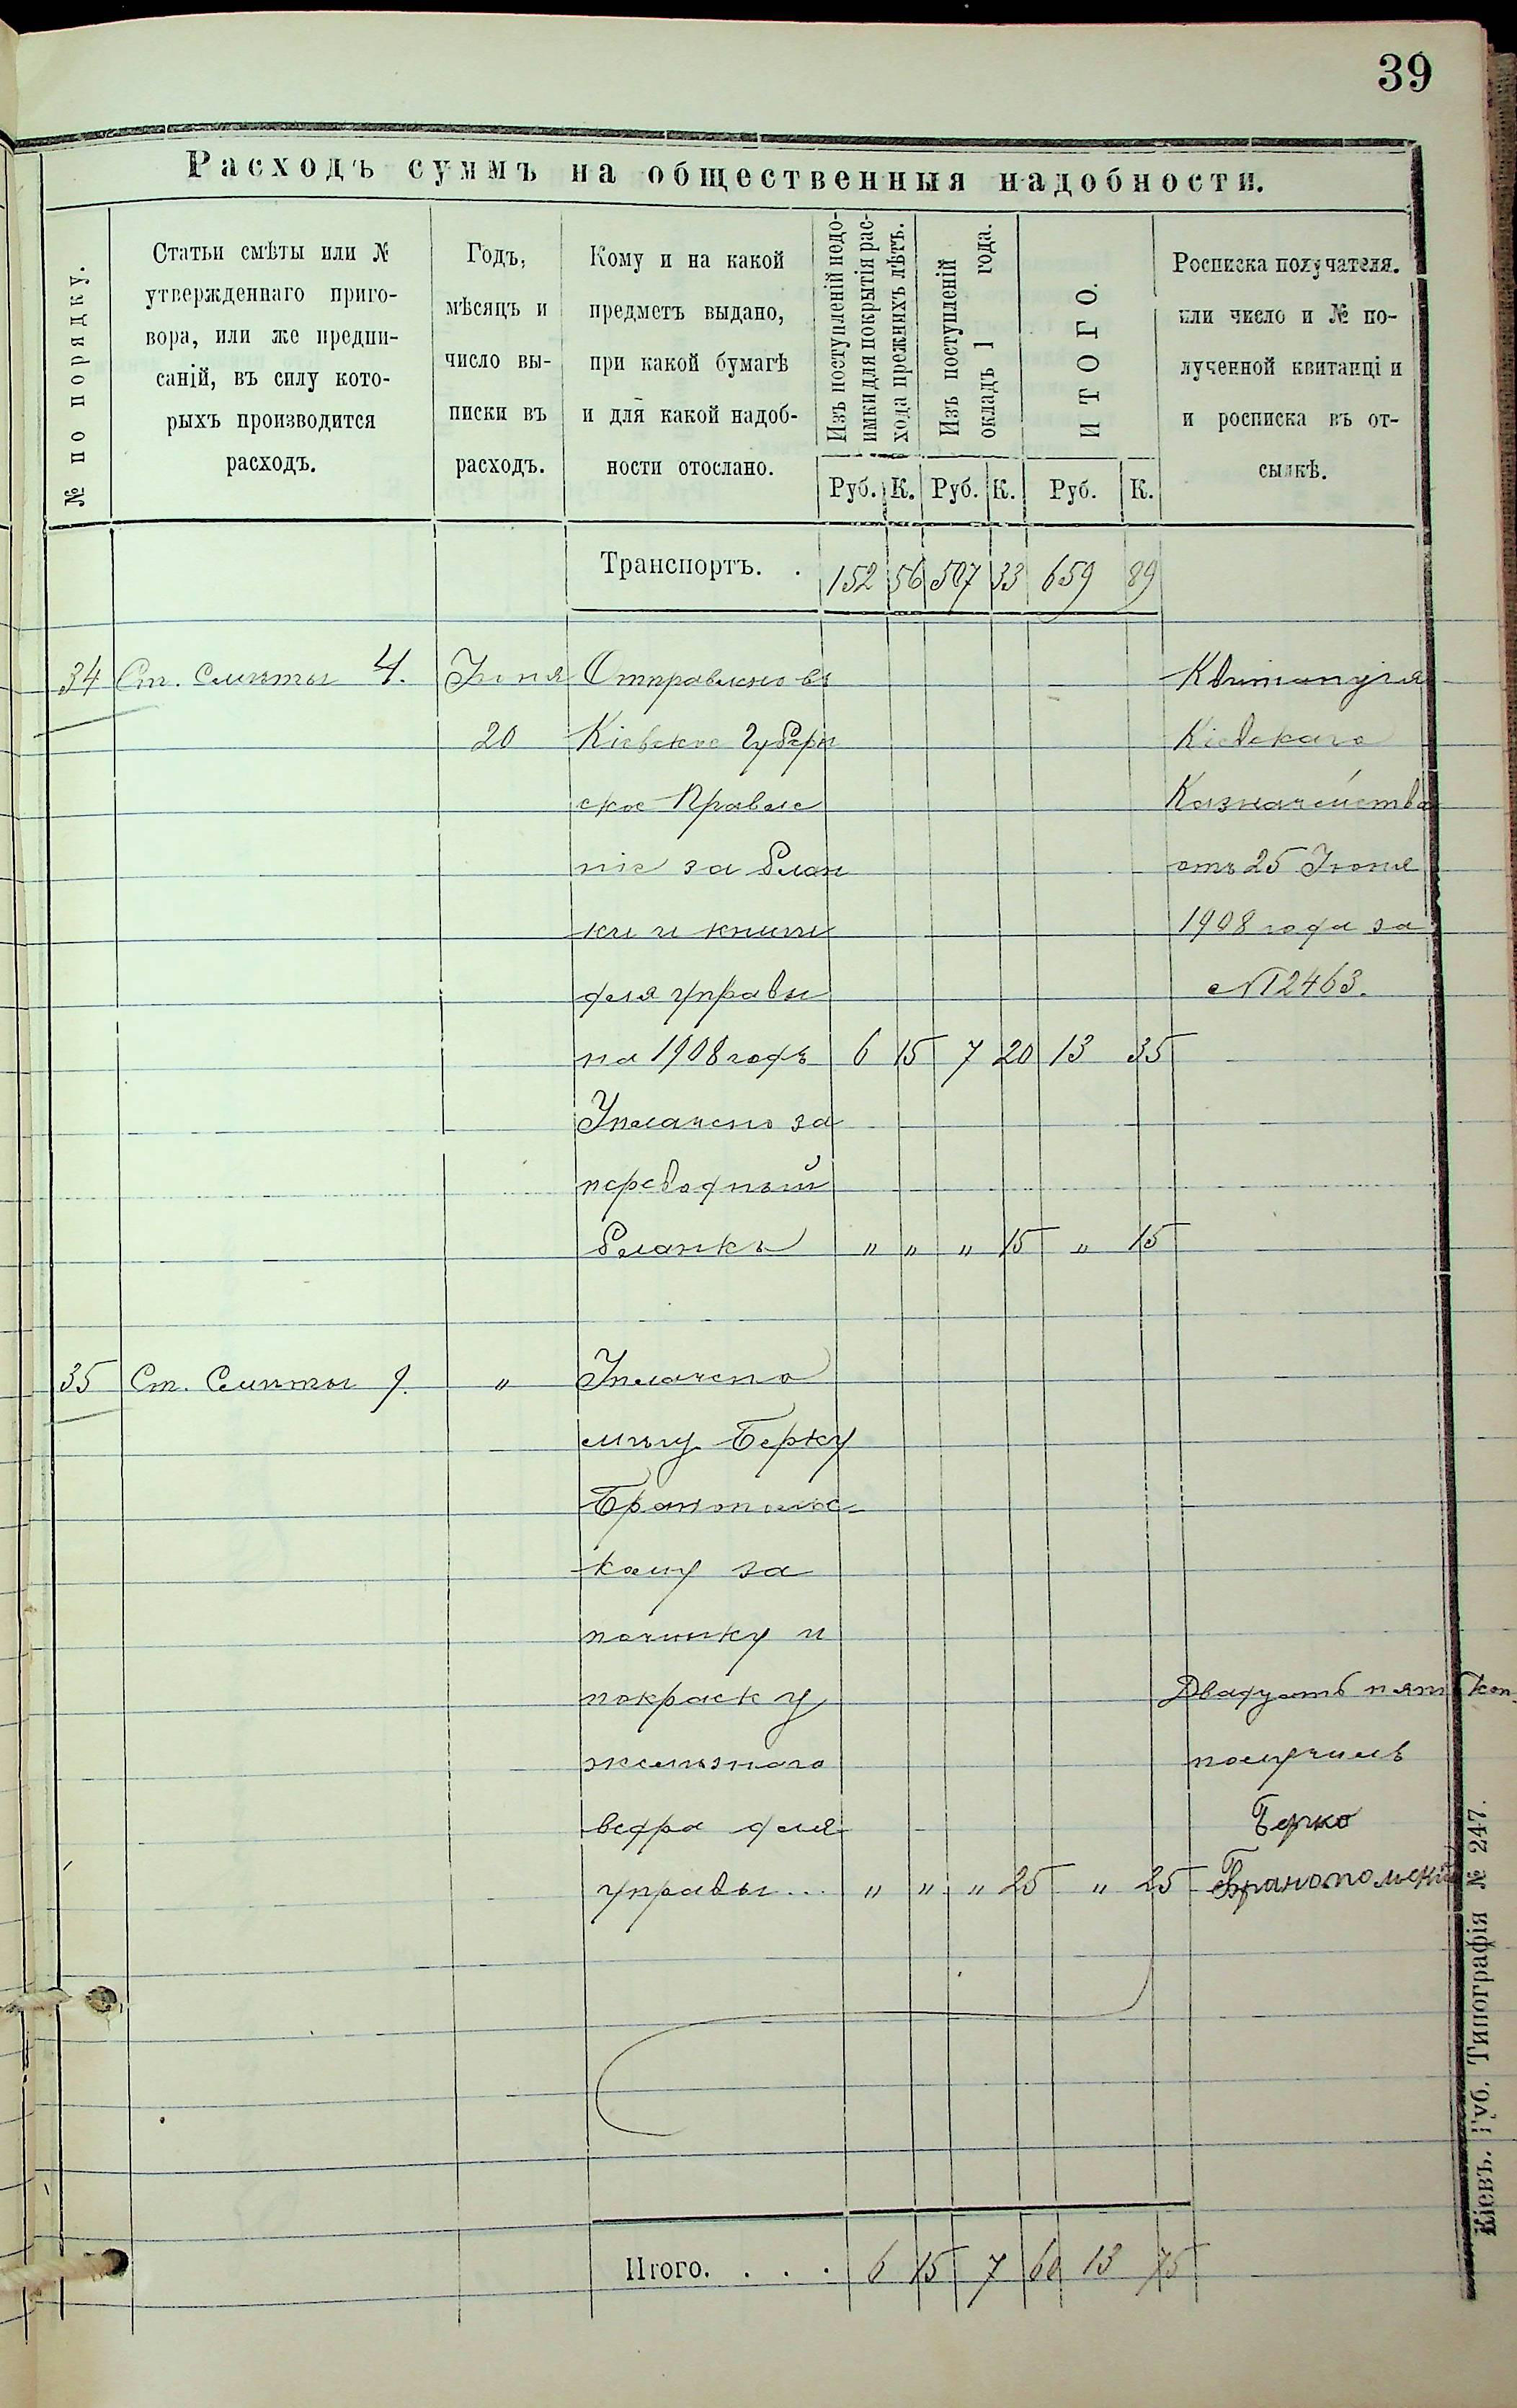 39
Расходъ суммъ на общественныя надобности.
№ по порядку.
Статьи смѣты или №
утвержденнаго приго-
вора, или же предпи-
саній, въ силу кото-
рыхъ производится
расходъ.
Годъ,
мѣсяцъ и
число вы-
писки въ
расходъ.
Кому и на какой
предметъ выдано,
при какой бумагѣ
и для какой надоб-
ности отослано.
Изъ поступленій недо-
имки для покрытія рас-
хода прежнихъ лѣтъ.
Изъ поступленій
окладъ 1 года.
ИТОГО.
Росписка получателя.
или число и № по-
лученной квитанціи
и росписка въ от-
сылкѣ.
Руб. К. Руб. К. Руб. К.
Транспортъ. . 152 56 507 33 659 89
34 Ст. Смѣты 4. Іюня Отправлено въ Квитанція
20 Кіевское Губерн Кіевскаго
ское Правле Казначейства
ніе за блан отъ 25 Іюня
ки и книги 1908 года за
для управы №2463.
на 1908 годъ 6 15 7 20 13 35
Уплачено за
переводный
бланкъ " " " 15 " 15
35 Ст. Смѣты 9. " Уплачено
мѣщ. Берку
кому за
починку и
покраску Двадцать пять коп.
желѣзнаго получилъ
ведра для Берко
управы... " " " 25 " 25
Итого. . . . 6 15 7 60 13 75
Кіевъ. Губ. Типографія № 247.